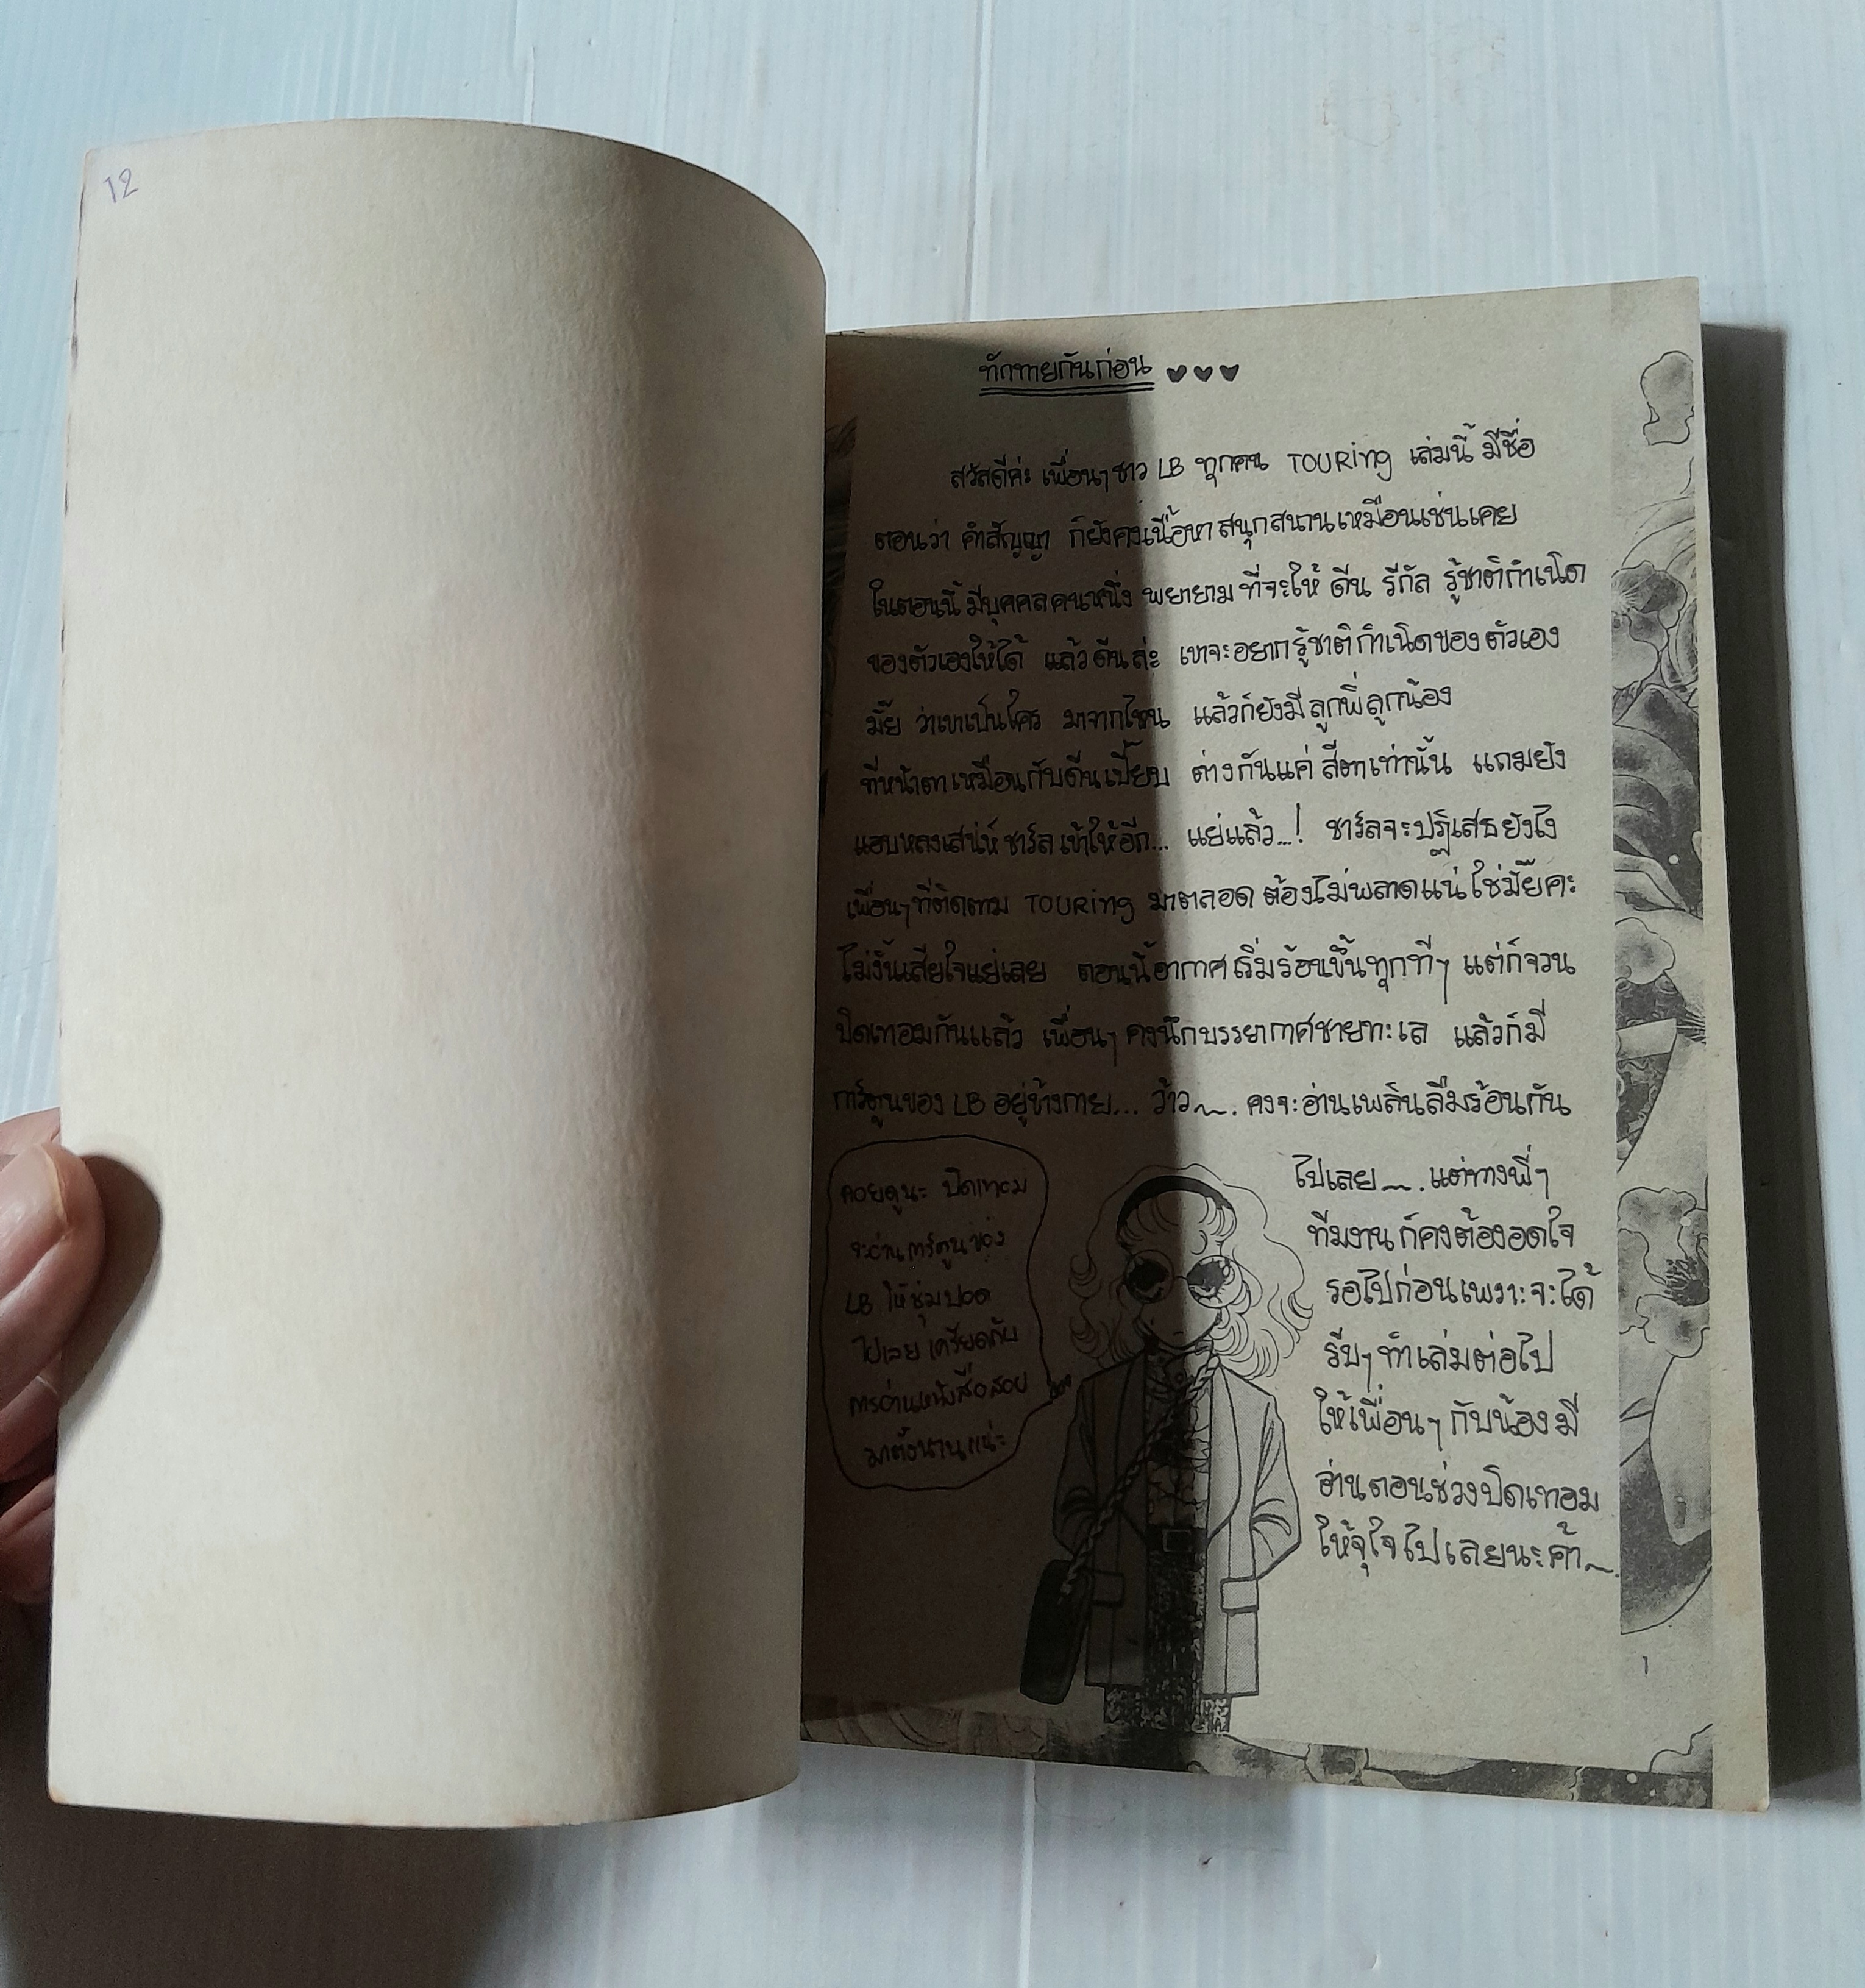 12
ทักทายกันก่อน
สวัสดีค่ะ เพื่อนๆ ชาว LB ทุกคน TOURing เล่มนี้ มีชื่อ
ตอนว่า คำสัญญา ก็ยังคงเนื้อหา สนุกสนานเหมือนเช่นเคย
ในตอนนี้ มีบุคคลคนหนึ่ง พยายาม ที่จะให้ ดีน รีกัล รู้ชาติกำเนิด
ของตัวเองให้ได้ แล้ว ดีนล่ะ เขาจะอยากรู้ชาติกำเนิดของตัวเอง
มั๊ย ว่าเขาเป็นใคร มาจากไหน แล้วก็ยังมี ลูกพี่ ลูกน้อง
ที่หน้าตาเหมือนกับดีนเปี๊ยบ ต่างกันแค่ สีตาเท่านั้น แถมยัง
แอบหลงเสน่ห์ ชาร์ล เข้าให้อีก... แย่แล้ว...! ชาร์ลจะปฏิเสธยังไง
เพื่อนๆ ที่ติดตาม TOURing มาตลอด ต้องไม่พลาดแน่ ใช่มั๊ยคะ
ไม่งั้นเสียใจแย่เลย ตอนนี้อากาศเริ่มร้อนขึ้นทุกทีๆ แต่ก็จวน
ปิดเทอมกันแล้ว เพื่อนๆ คงนึกบรรยากาศชายทะเล แล้วก็มี
การ์ตูนของ LB อยู่ข้างกาย... ว้าว~. คงจะอ่านเพลินลืมร้อนกัน
ไปเลย~. แต่ทางพี่ๆ
ทีมงาน ก็คงต้องอดใจ
รอไปก่อนเพราะจะได้
รีบๆ ทำเล่มต่อไป
ให้เพื่อนๆ กับน้องมี
อ่านตอนช่วงปิดเทอม
ให้จุใจไปเลยนะค้า~.
คอยดูนะ ปิดเทอม
จะอ่านการ์ตูนของ
LB ให้ชุ่มปอด
ไปเลย เครียดกับ
การอ่านหนังสือสอบ
มาตั้งนานแน่ะ
1